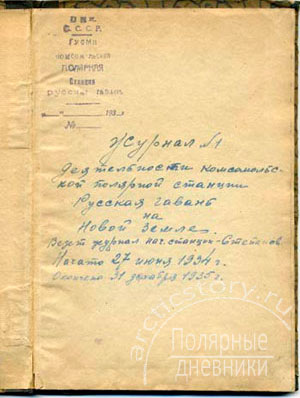 С.С.С.Р.
ПОЛЯРНАЯ
Станция
РУССКАЯ ГАВАНЬ
"__"____193_г.
№
Журнал №1
деятельности комсомольс-
кой полярной станции
Русская гавань
на
Новой Земле.
Ведет журнал нач. станции - Степанов
Начато 27 июня 1934 г.
Окончено 31 декабря 1935 г.
arcticstory.ru
Полярные
дневники